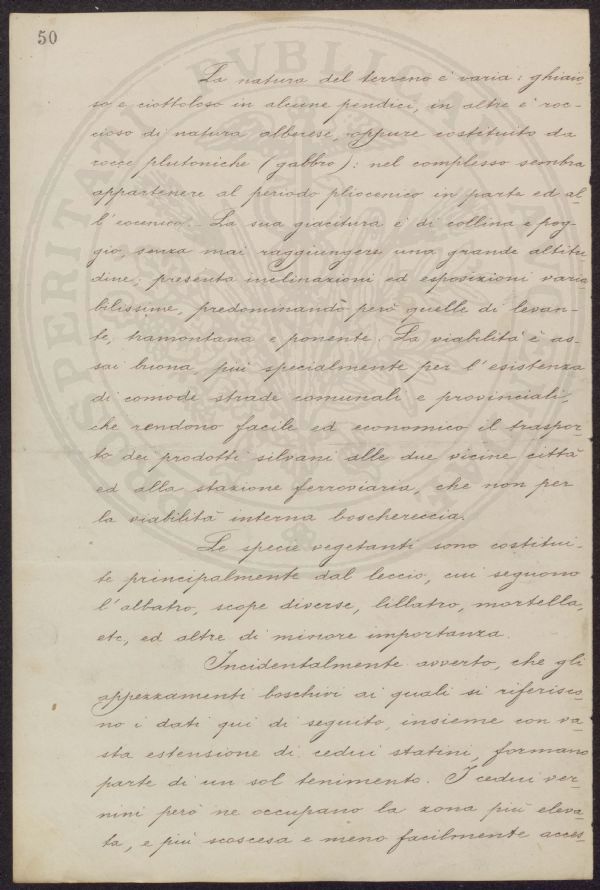 50
La natura del terreno è varia: ghiaio
so e ciottoloso in alcune pendici, in altre è roc-
cioso di natura alberese, oppure costituito da
rocce plutoniche (gabbro): nel complesso sembra
appartenere al periodo pliocenico in parte ed al-
l'eocenico. - La sua giacitura è di collina e pog-
gio, senza mai raggiungere una grande altitu
dine; presenta inclinazioni ed esposizioni varia
bilissime, predominando però quelle di levan-
te, tramontana e ponente. La viabilità è as-
sai buona, più specialmente per l'esistenza
di comode strade comunali e provinciali,
che rendono facile ed economico il traspor-
to dei prodotti silvani alle due vicine città
ed alla stazione ferroviaria, che non per
la viabilità interna boschereccia.
Le specie vegetanti sono costitui-
te principalmente dal leccio, cui seguono
l'albatro, scope diverse, lillatro, mortella,
etc, ed altre di minore importanza.
Incidentalmente avverto, che gli
appezzamenti boschivi ai quali si riferisco-
no i dati qui di seguito, insieme con va-
sta estensione di cedui statini, formano
parte di un sol tenimento. I cedui ver-
nini però ne occupano la zona più eleva-
ta, e più scoscesa e meno facilmente acces-